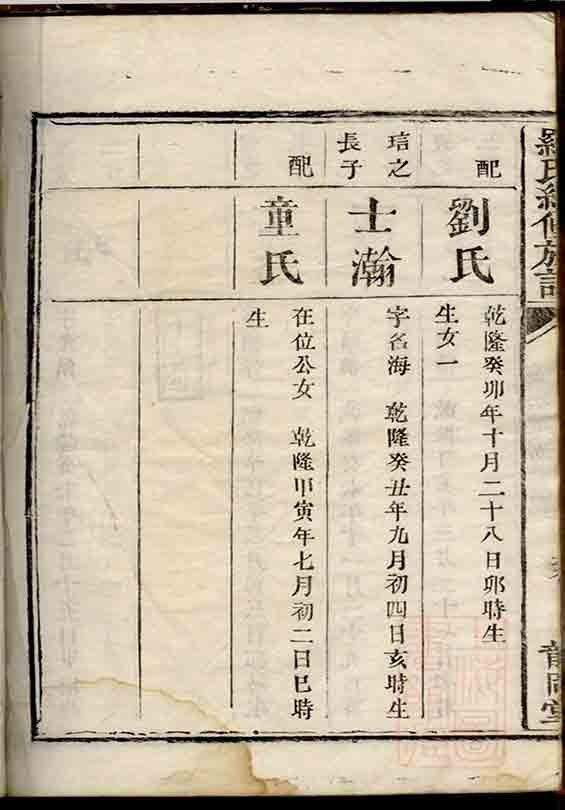 羅氏續修族譜
配
劉氏
乾隆癸卯年十月二十八日卯時生
生女一
琂之
長子
士瀚
字名海 乾隆癸丑年九月初四日亥時生
配
童氏
在位公女 乾隆甲寅年七月初二日巳時
生